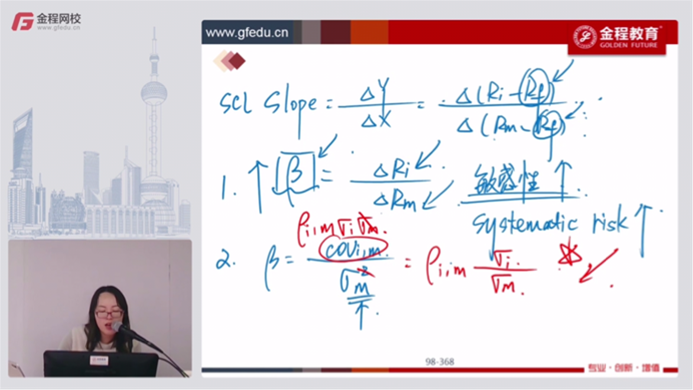 金程网校
www.gfedu.cn
www.gfedu.cn
金程教育
GOLDEN FUTURE
SCL Slope = ΔY / ΔX = Δ(Ri - Rf) / Δ(Rm - Rf)
1. ↑ β = ΔRi / ΔRm 敏感性 ↑
systematic risk ↑
ρi,m σi σm
2. β = COVi,m / σm² = ρi,m σi / σm
98-368
专业·创新·增值